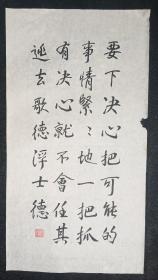 要下决心把可能的
事情緊〻地一把抓
有决心就不會任其
逃去歌德浮士德